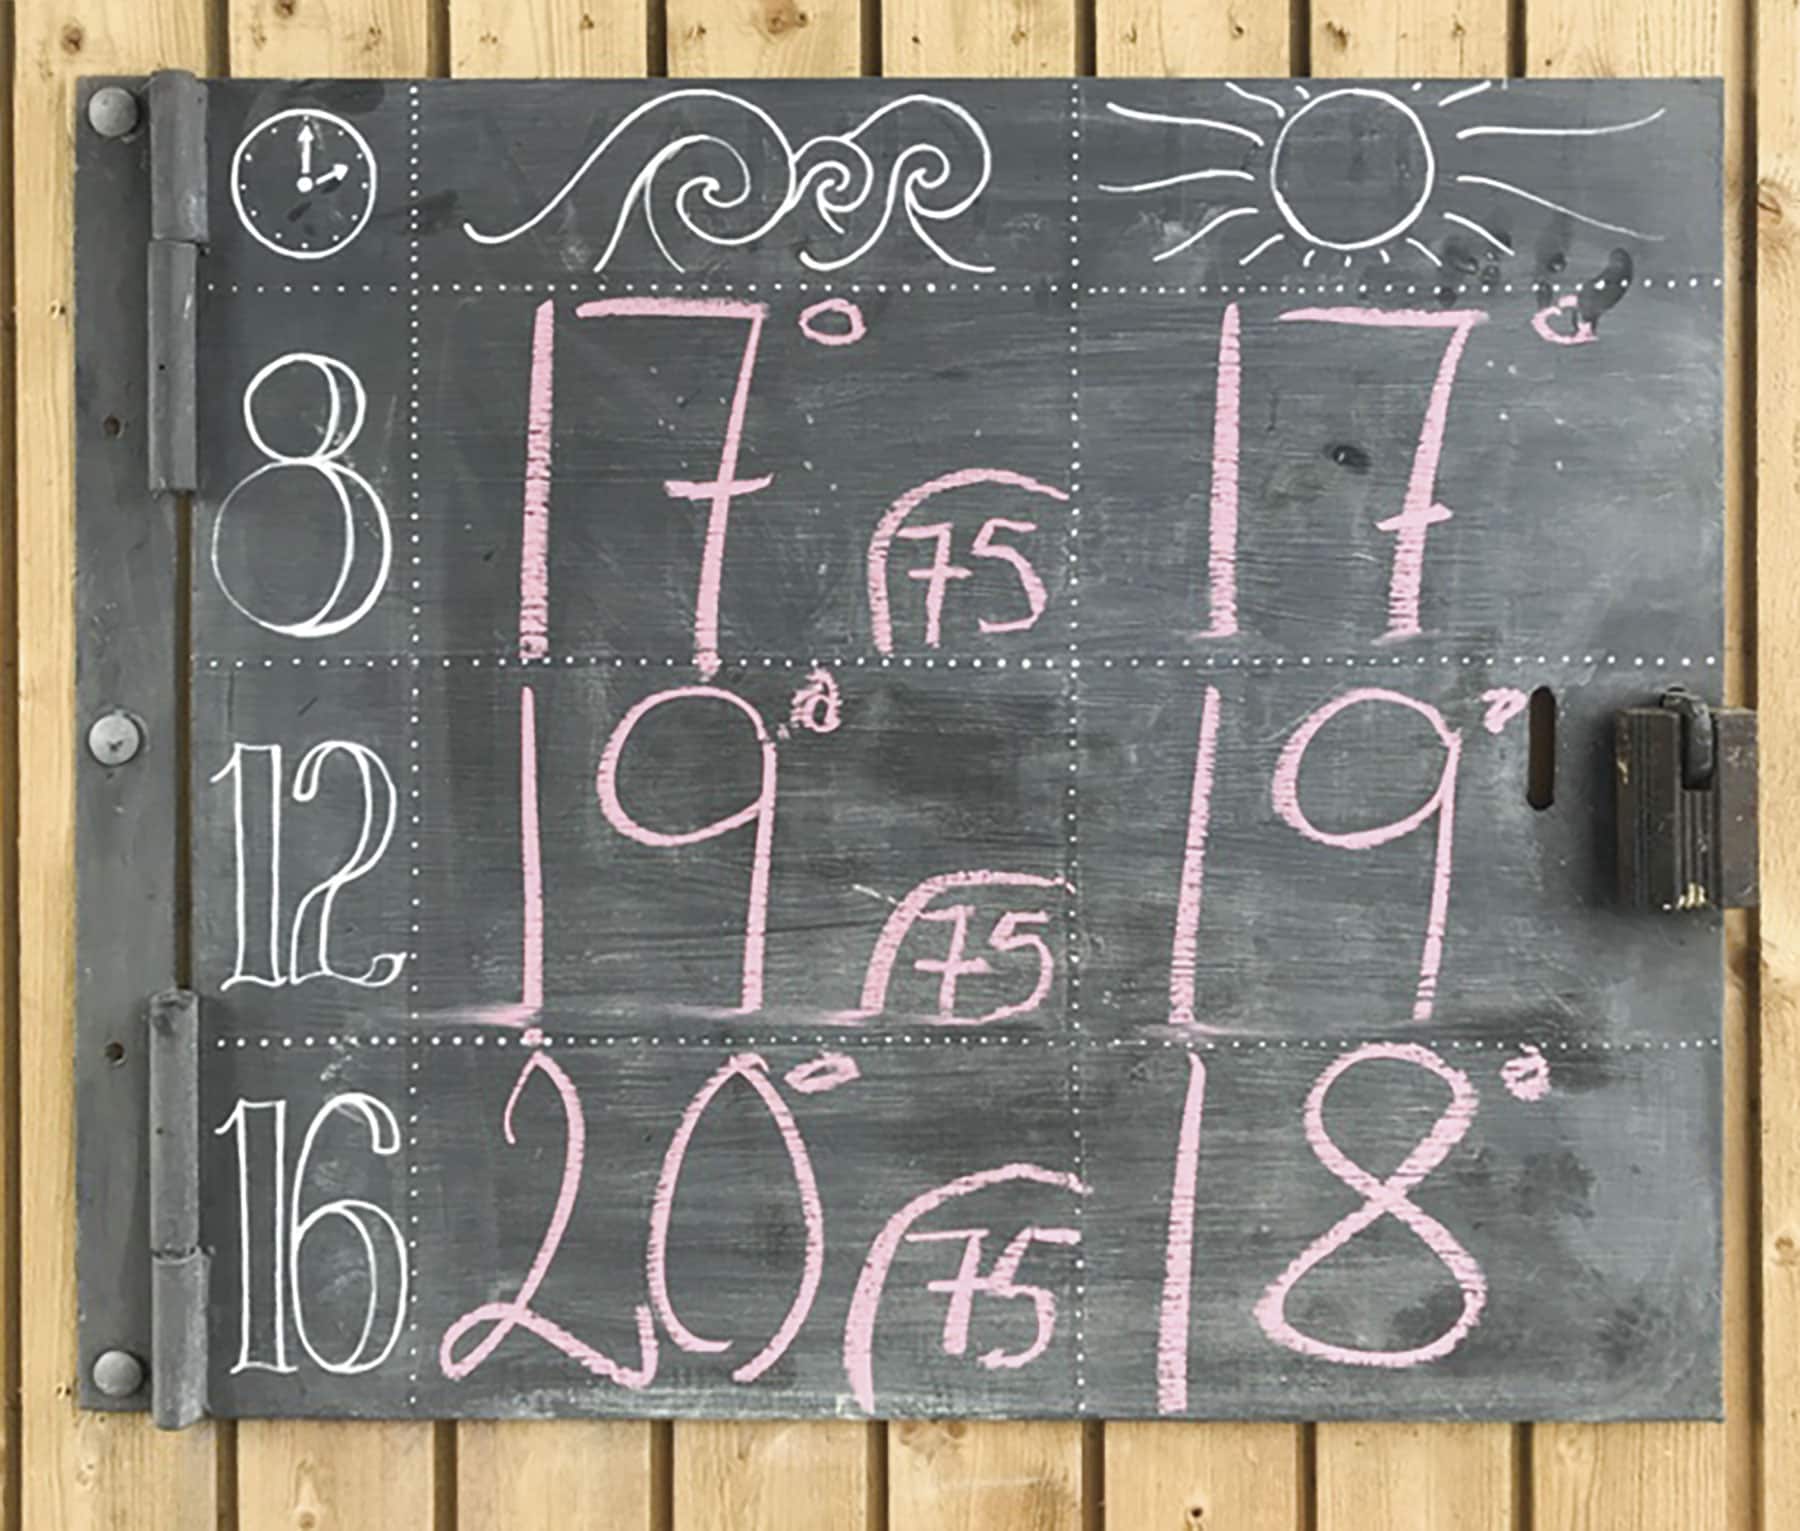 8 17° 75 17°
12 19° 75 19°
16 20° 75 18°